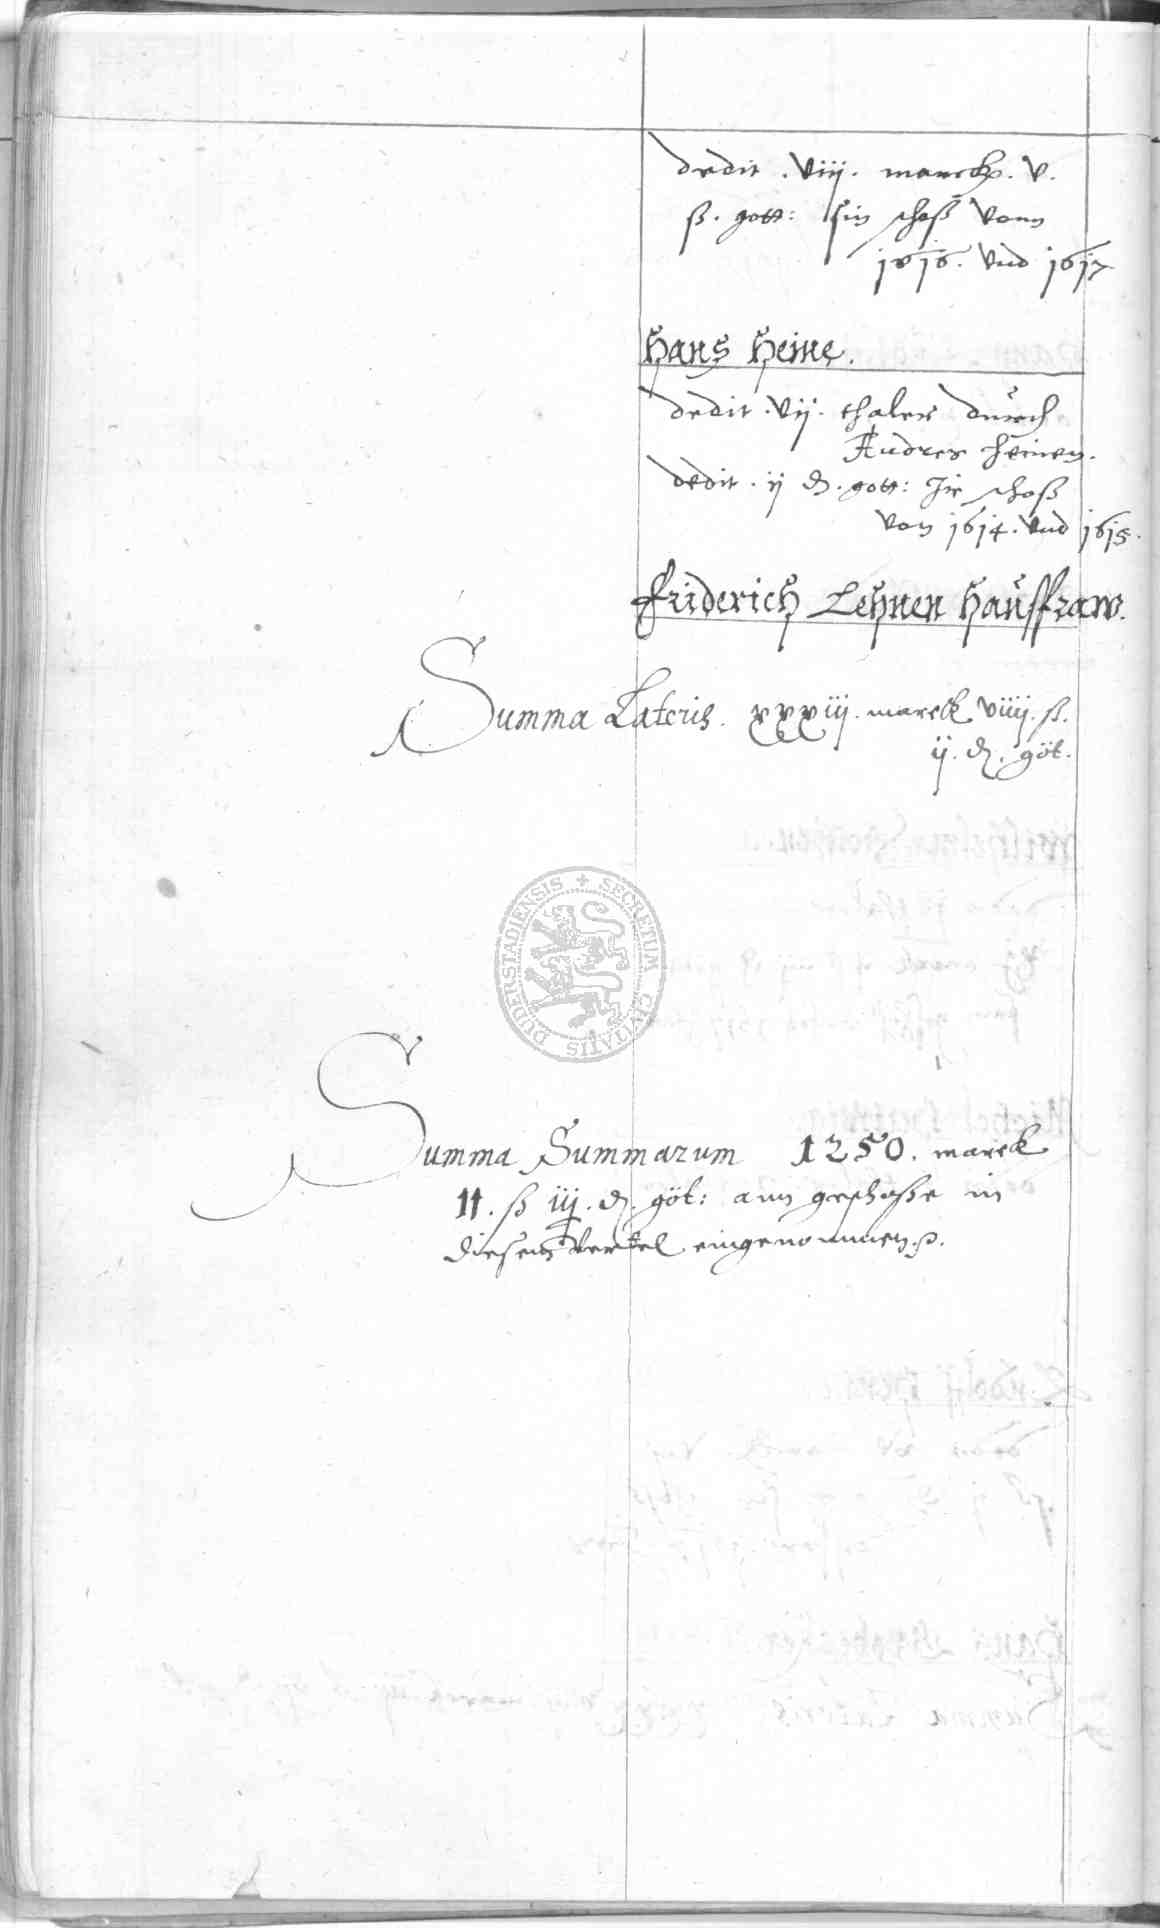 dedit . viij . marck . v .
ß . gott : sin schoß vonn
1616 . vnd 1617
Hans Heine .
dedit . vij . thaler durch
Andres Heinen .
dedit . ij d . gott : Jr schoß
von 1614 . vnd 1615 .
Friderich Lehnen Haußfraw .
Summa Lateris . xxxiij . marck viiij . ß .
ij . d . göt .
DUDERSTADIENSIS + SECRETUM CIVITATIS
Summa Summarum 1250 . marck
11 . ß iij . d . göt : ann geschosse in
diesem Vertel eingenommen .